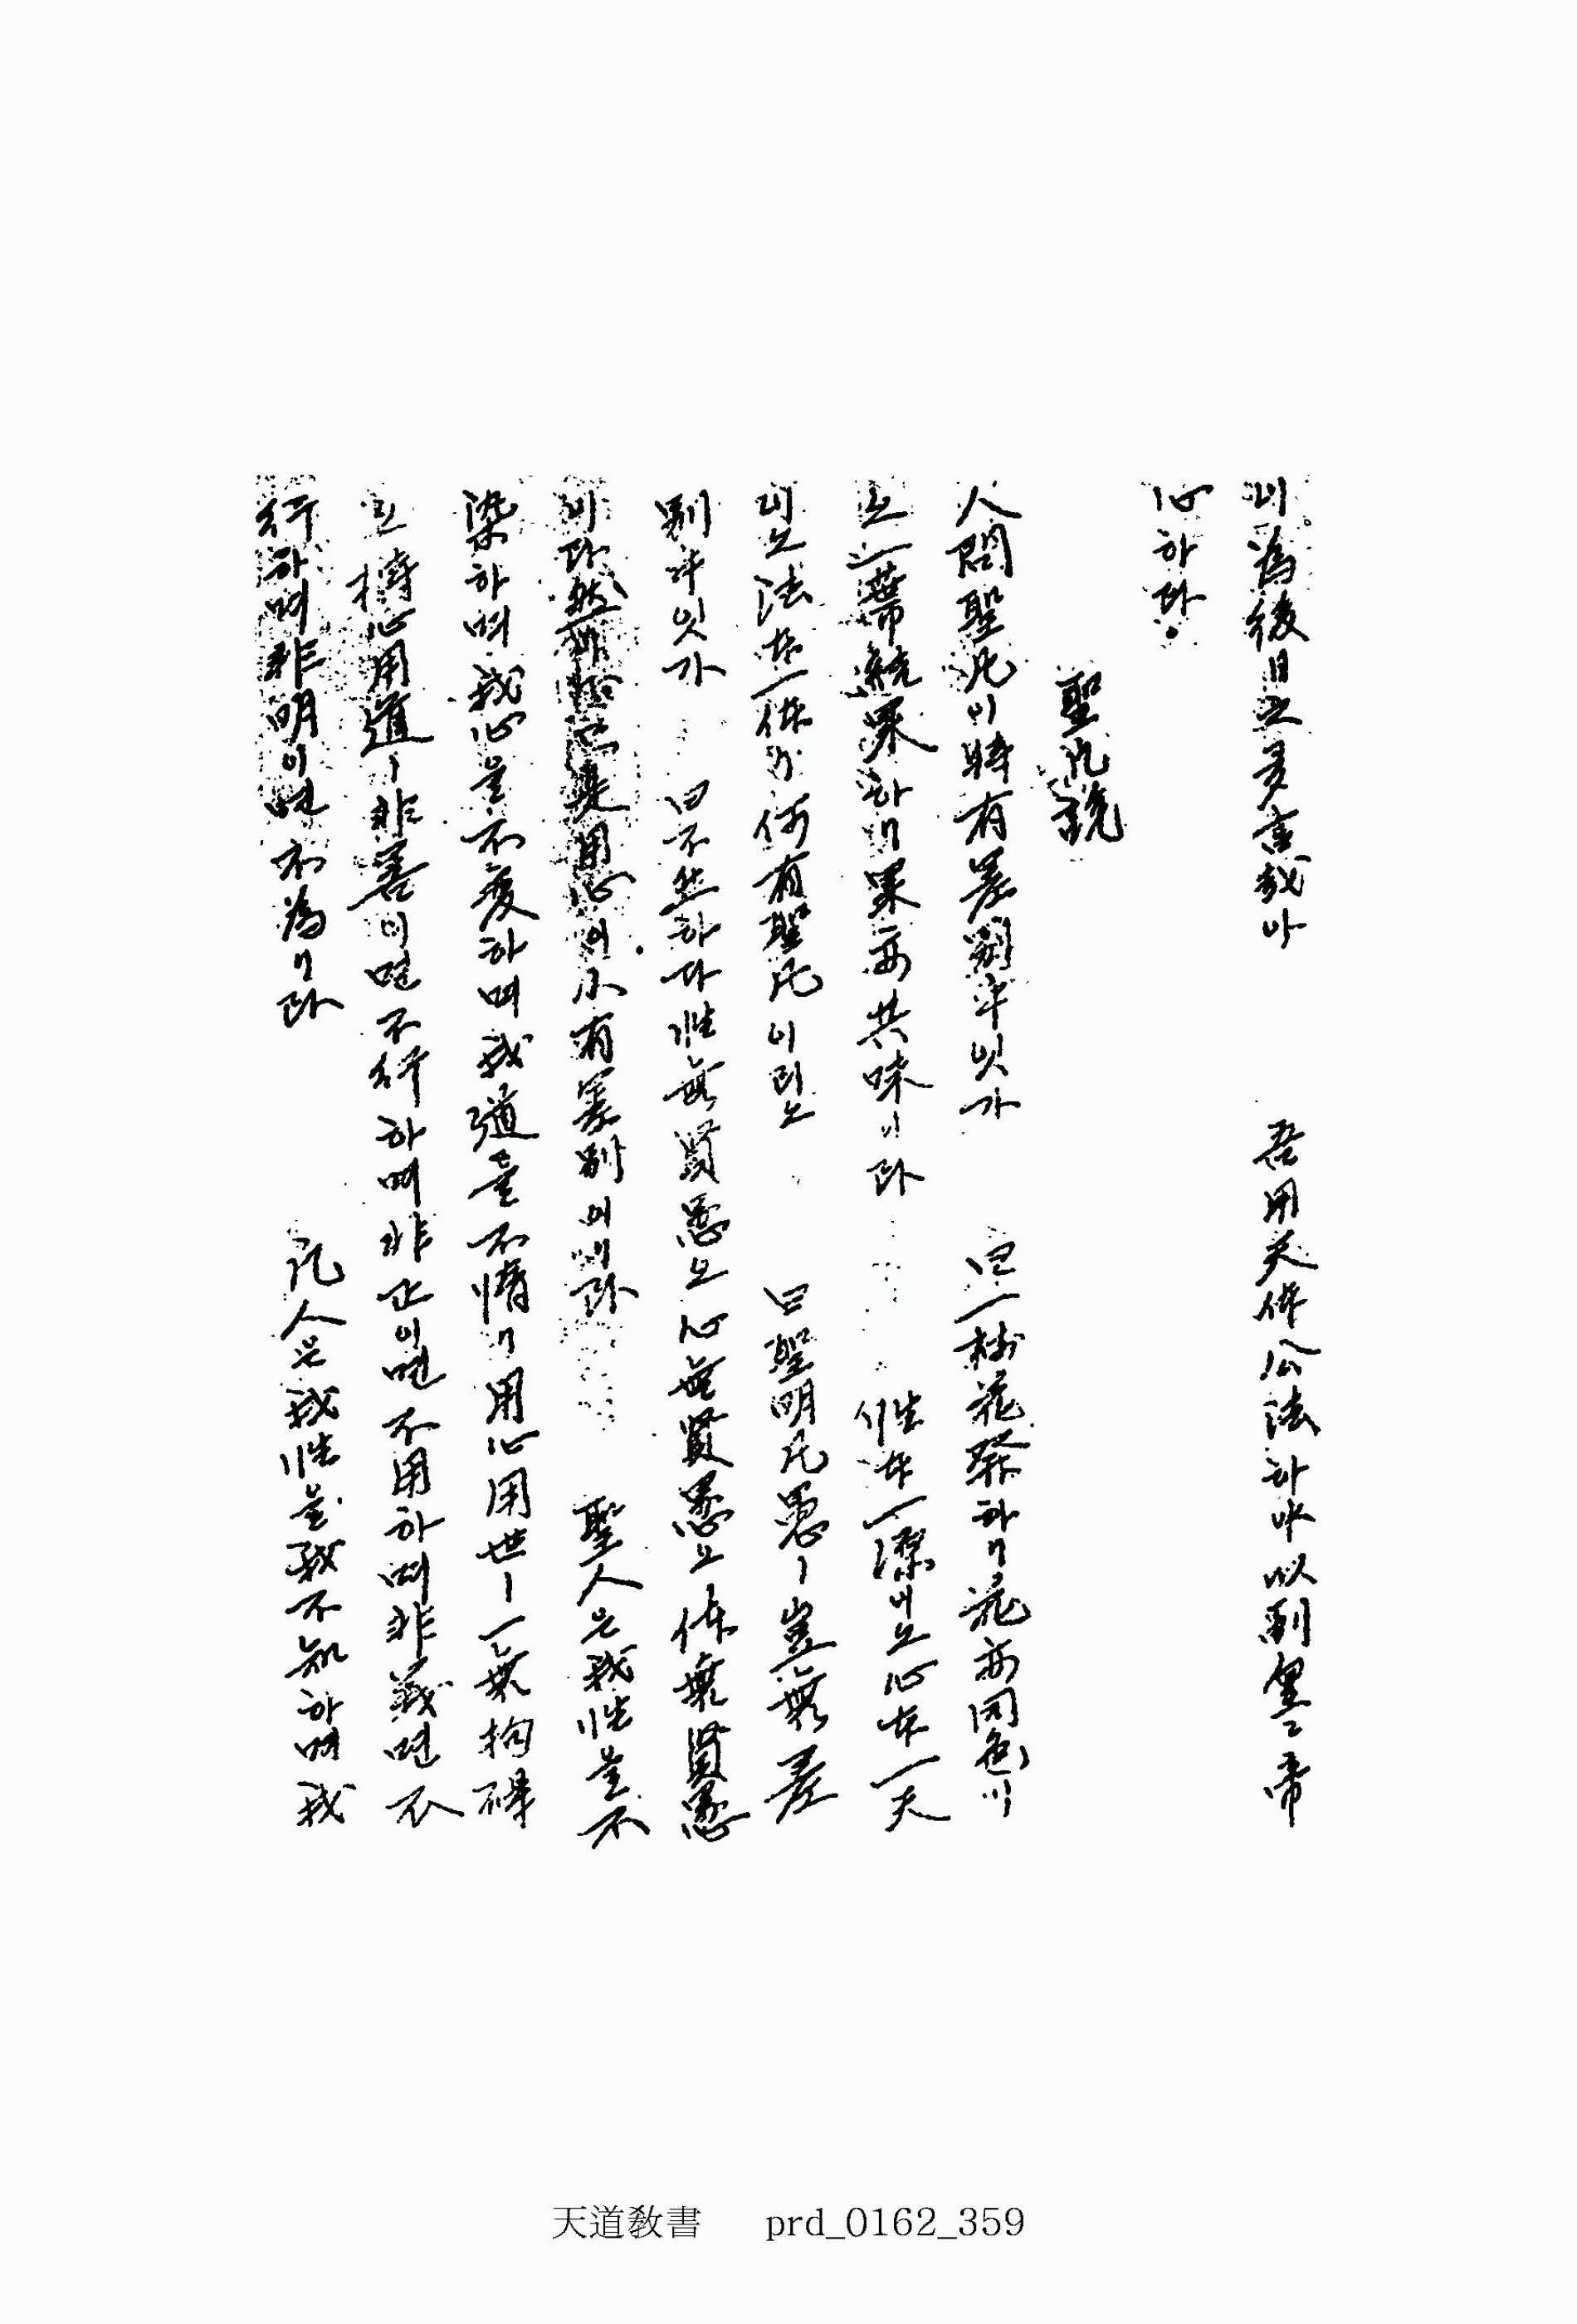 리爲後日之多言哉아 吾用天体公法하야 以副皇皇帝
心하라.
聖凡說
人問聖凡이 時有差別乎잇가 曰一樹花發하니 花亦同色이
오 一蔕結果하니 果亦共味이라 性本一源이오 心本一天
이오 法本一体니 何有聖凡이리오 曰聖明凡愚ㅣ 豈無差
別乎잇가 曰不然하다 性無賢愚오 心無賢愚오 体無賢愚
이라 然 用心의 小有差別이니라 聖人은 我性을 不
染하며 我心을 不變하며 我道를 不惰니 用心用世ㅣ 一無拘碍
오 持心用道ㅣ 非善이면 不行하며 非正이면 不用하며 非義면 不
行하며 非明이면 不爲니라 凡人은 我性을 我不知하며 我
天道敎書 prd_0162_359